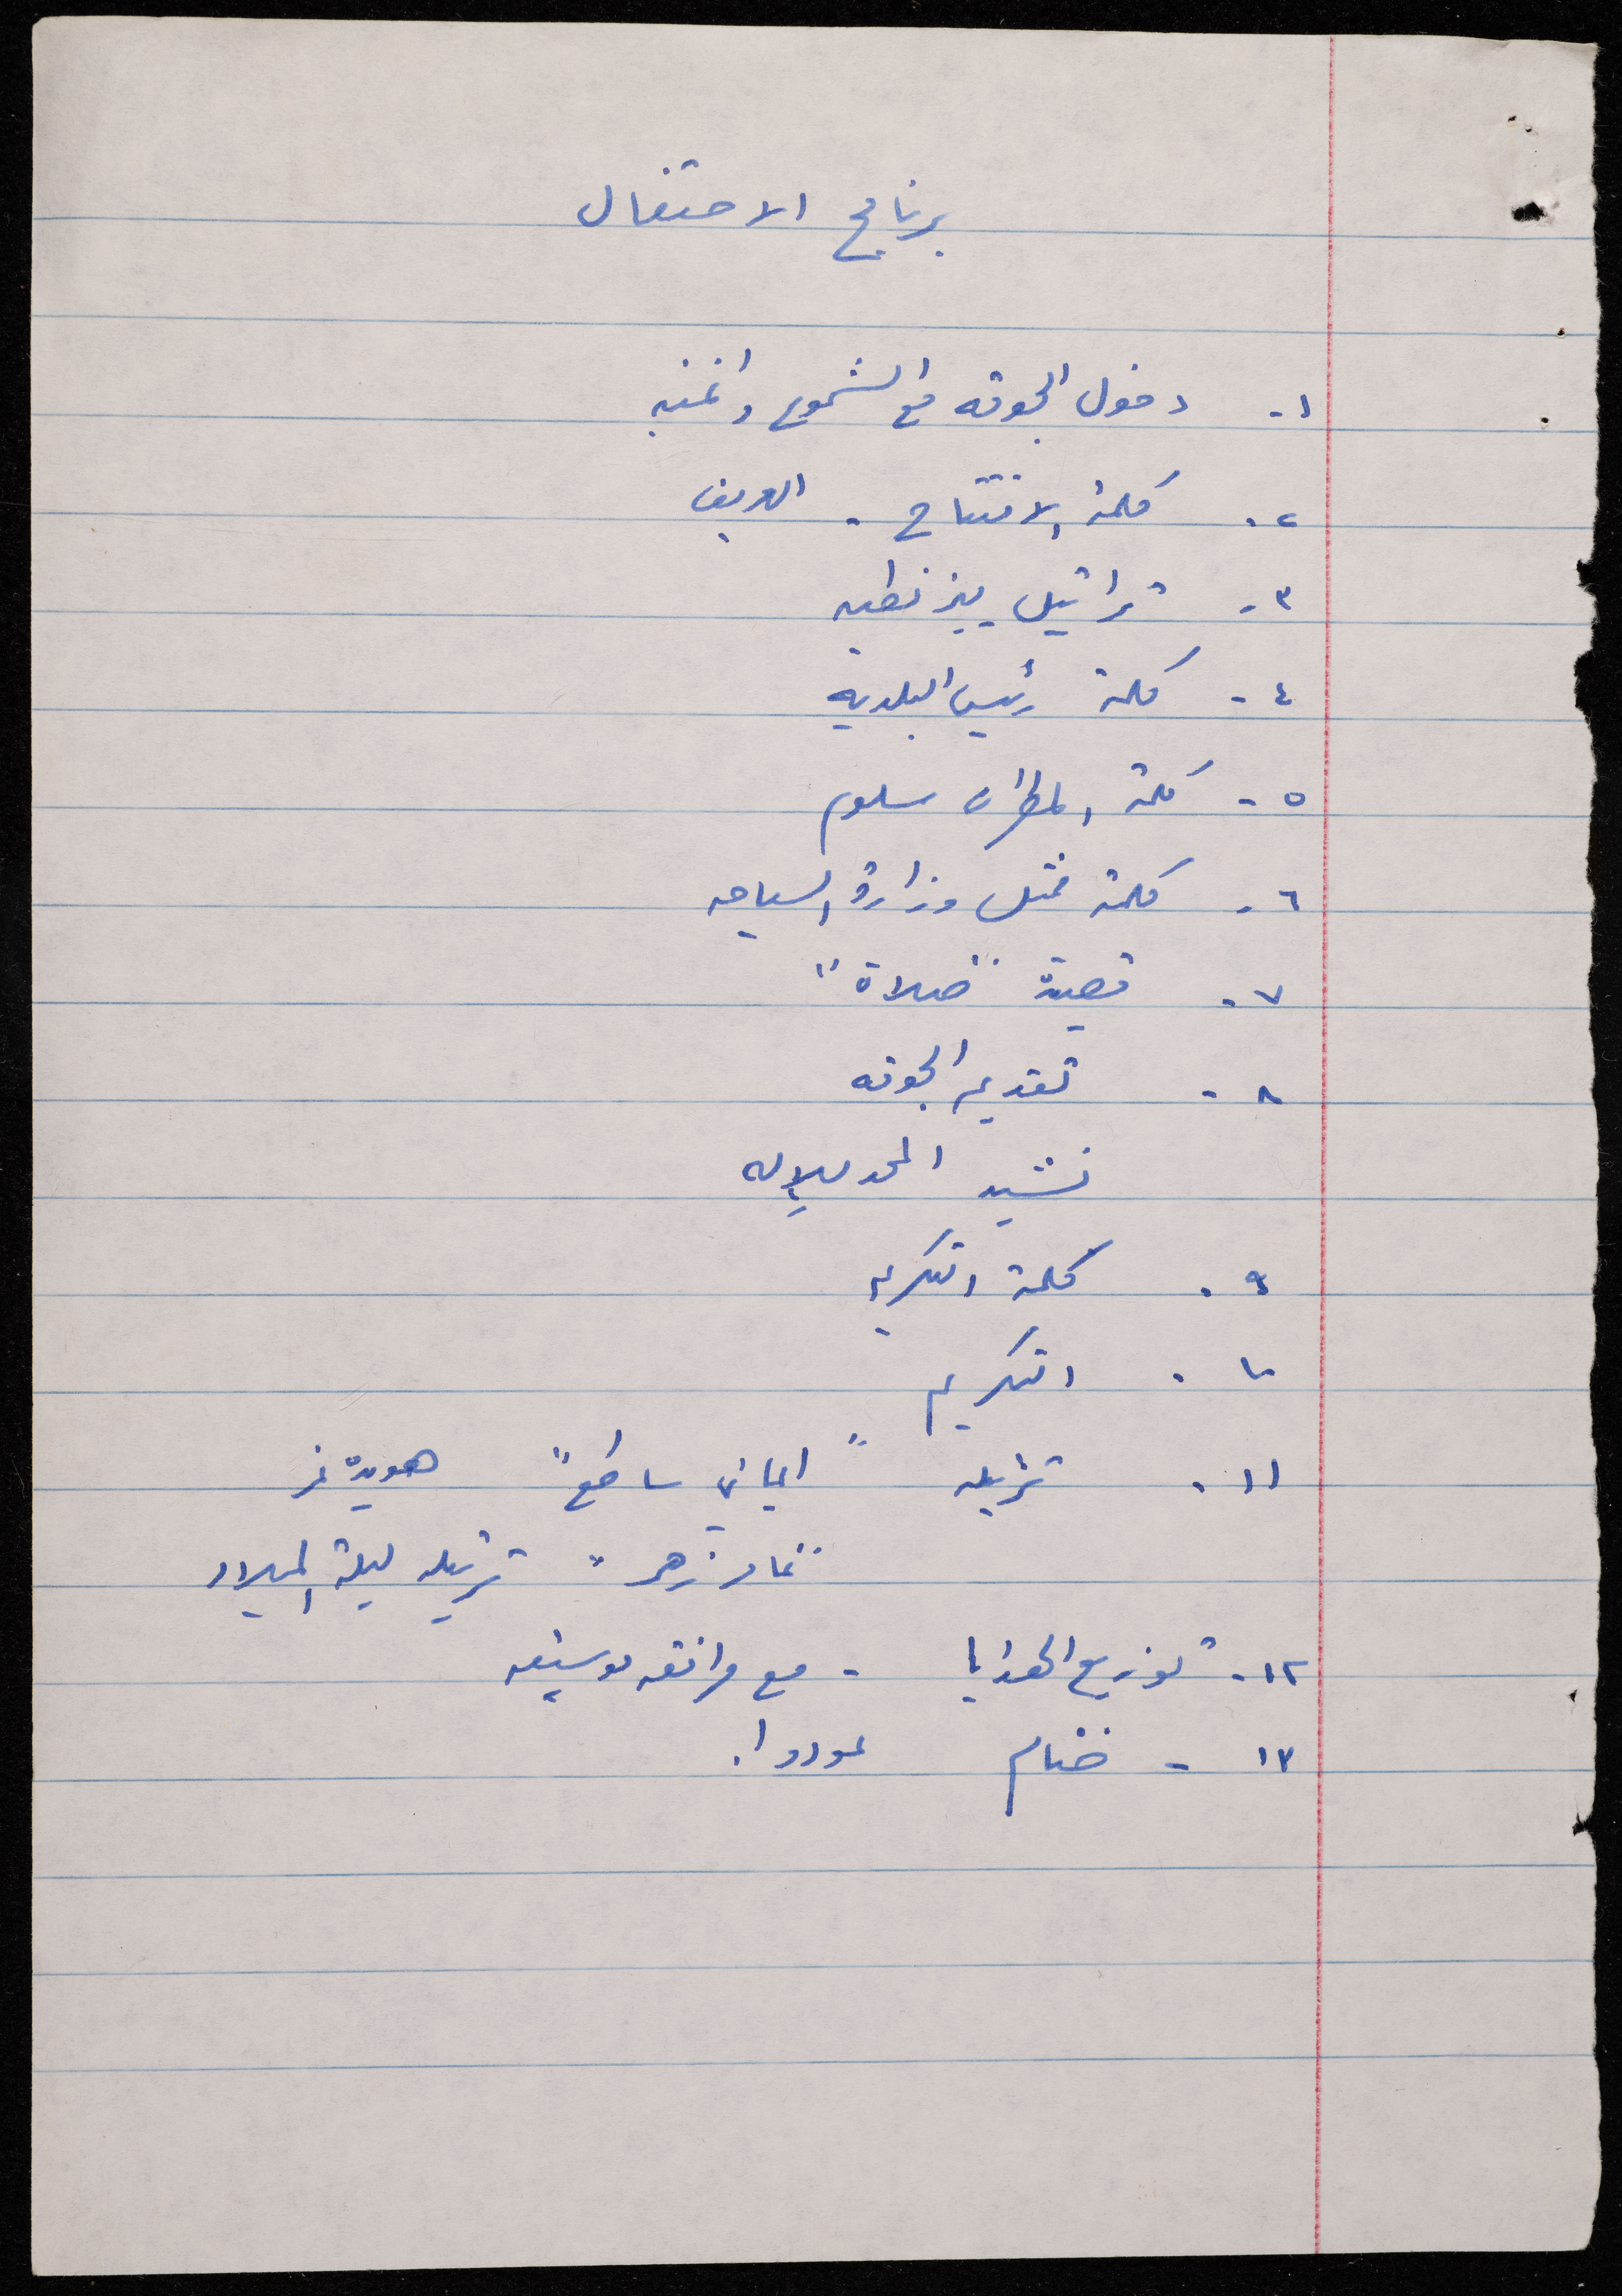 برنامج الاحتفال
١- دخول الجوقه مع الشموع واغنيه
٢. كلمة الافتتاح - العريف
٣- تراتيل بيزنطيه
٤- كلمة رئيس البلديه
٥- كلمة المطران سلوم
٦- كلمة ممثل وزارة السياحه
٧- قصيدة "صلاة"
٨- تقديم الجوقه
نشيد المجد للإله
٩. كلمة التكريم
١٠. التكريم
١١. ترتيله "ايماني ساطع" هويدة نمر
ترتيله ليلة الميلاد
١٢- توزيع الهدايا - مع مرافقه موسيقيه
١٣- ختام